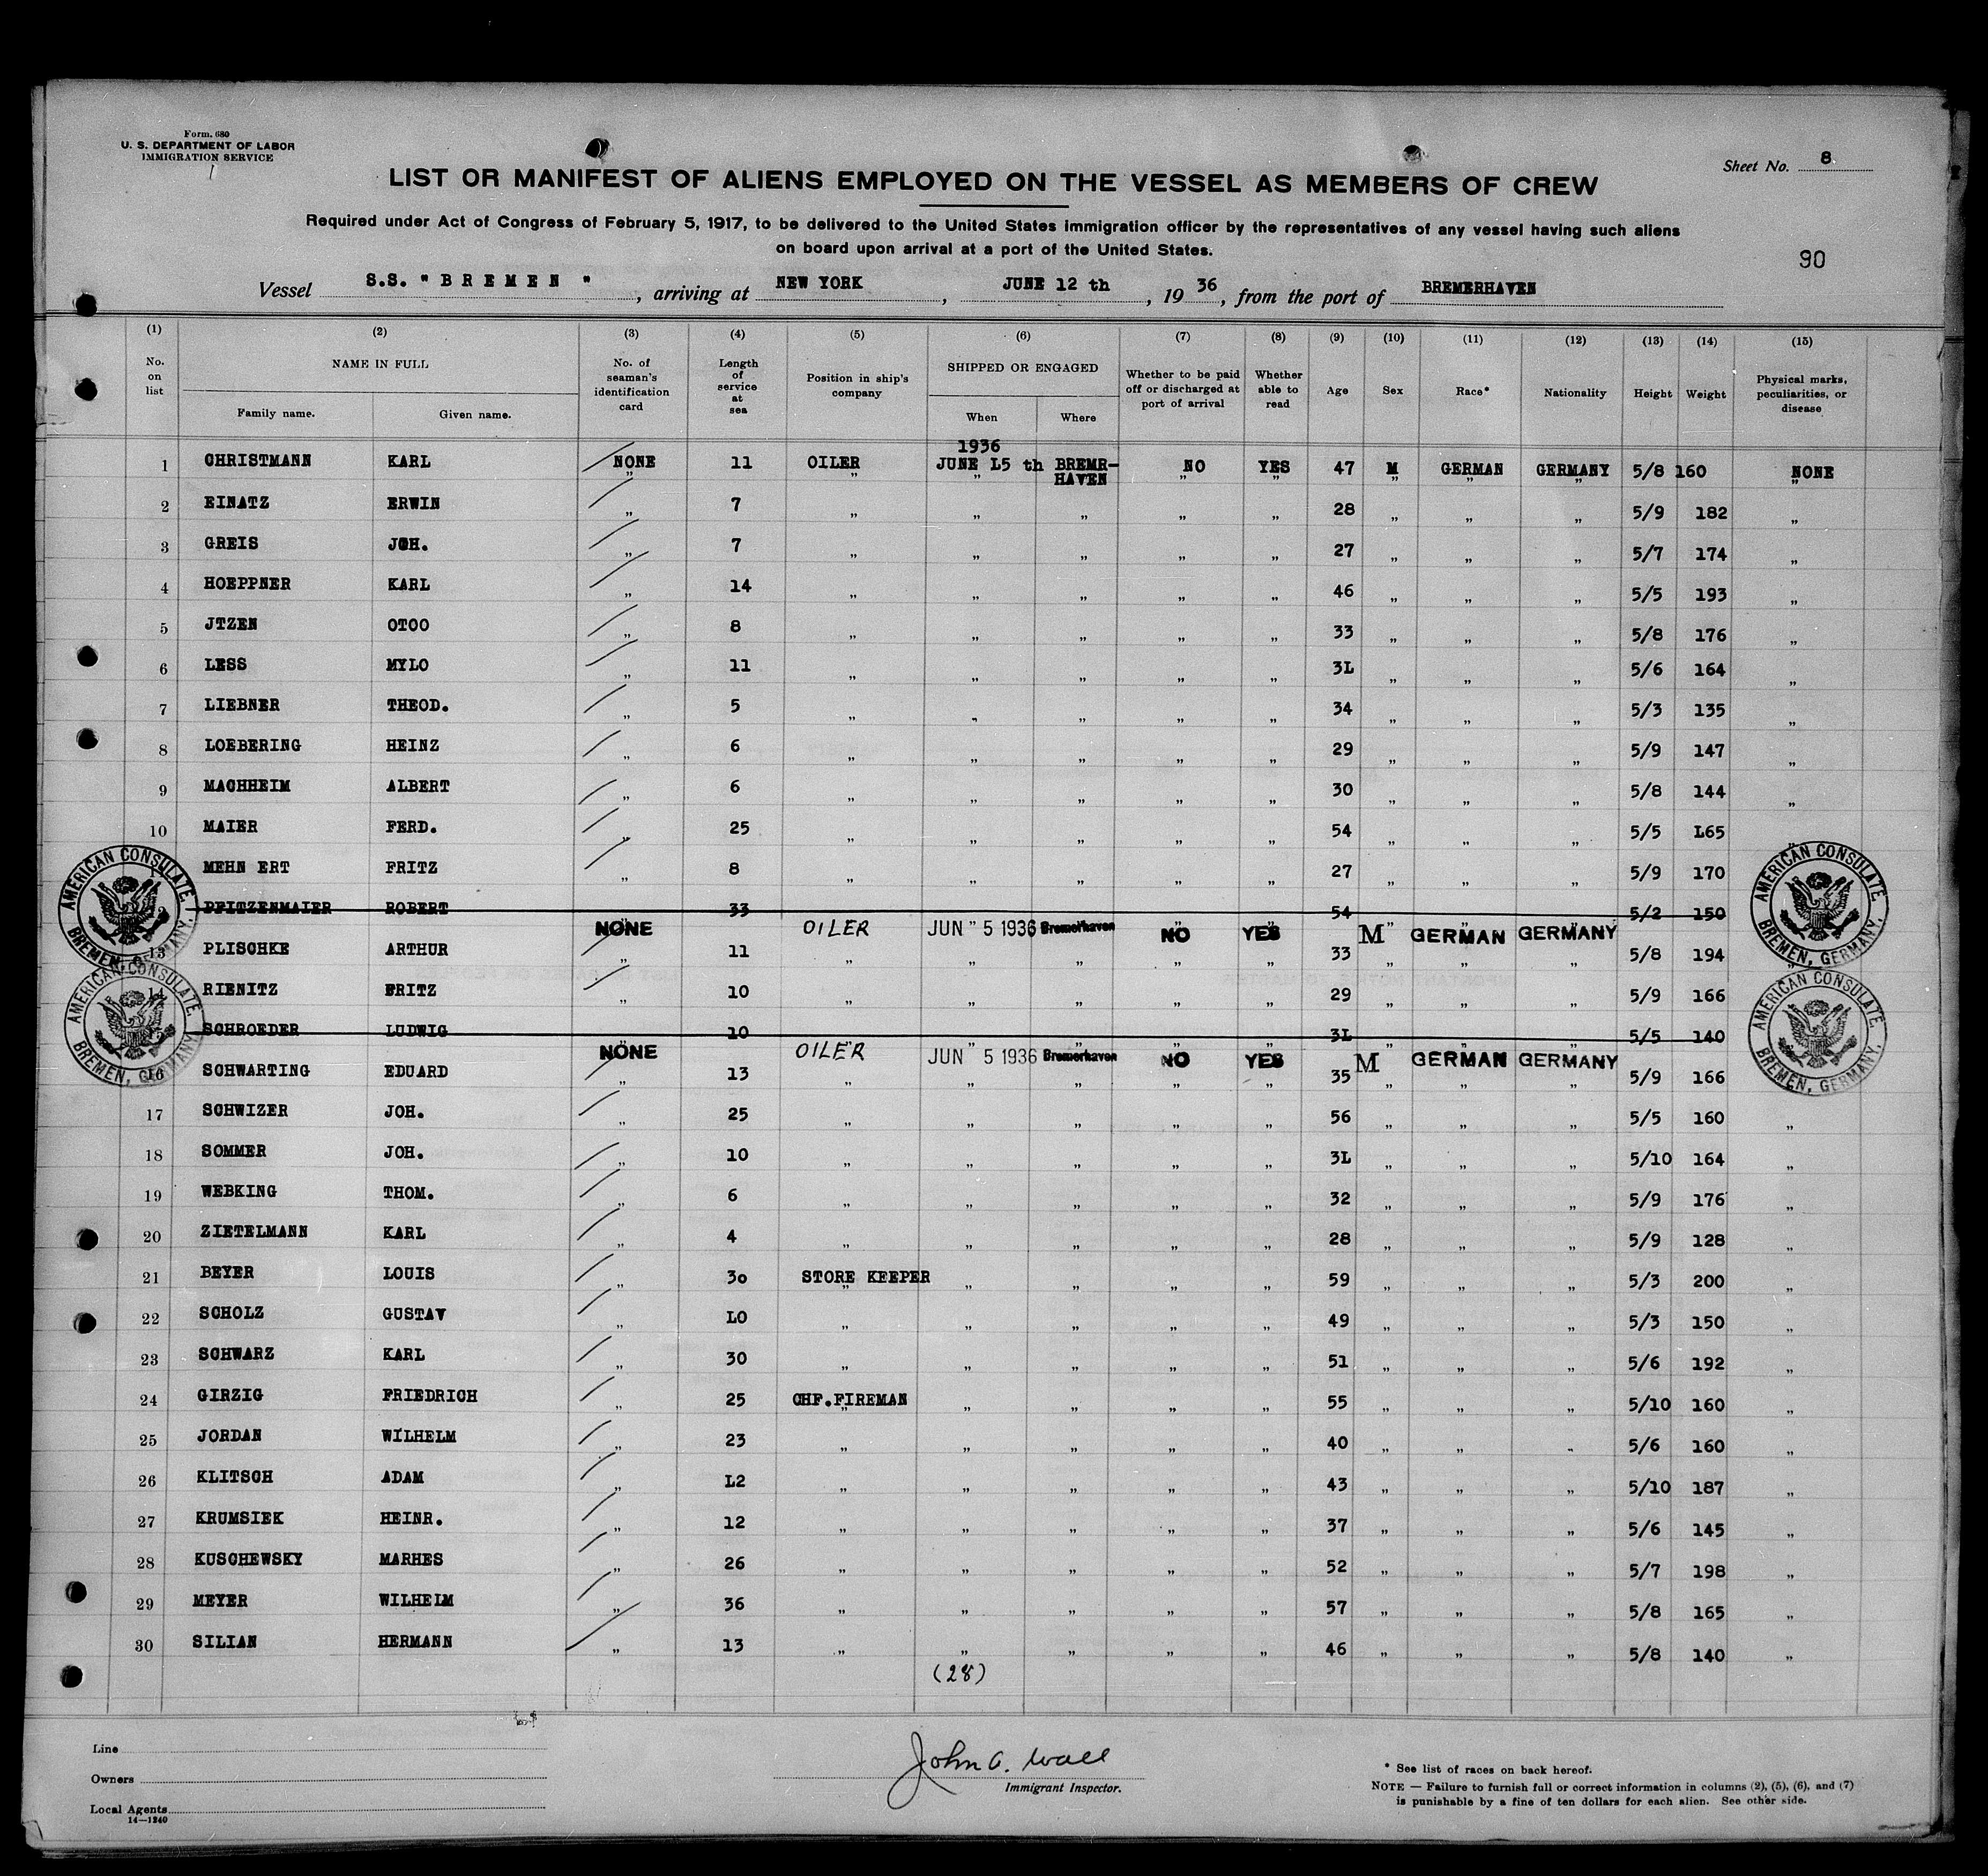 Form. 680
U. S. DEPARTMENT OF LABOR
IMMIGRATION SERVICE
Sheet No. 8
LIST OR MANIFEST OF ALIENS EMPLOYED ON THE VESSEL AS MEMBERS OF CREW
Required under Act of Congress of February 5, 1917, to be delivered to the United States immigration officer by the representatives of any vessel having such aliens
on board upon arrival at a port of the United States.
90
Vessel S.S. "BREMEN", arriving at NEW YORK, JUNE 12 th, 19 36, from the port of BREMERHAVEN
(1) (2) (3) (4) (5) (6) (7) (8) (9) (10) (11) (12) (13) (14) (15)
No. on list NAME IN FULL Family name. Given name. No. of seaman's identification card Length of service at sea Position in ship's company SHIPPED OR ENGAGED When Where Whether to be paid off or discharged at port of arrival Whether able to read Age Sex Race* Nationality Height Weight Physical marks, peculiarities, or disease
1936
1 CHRISTMANN KARL NONE 11 OILER JUNE L5 th BREMR-HAVEN NO YES 47 M GERMAN GERMANY 5/8 160 NONE
2 EINATZ ERWIN " 7 " " " " " 28 " " " 5/9 182 "
3 GREIS JOH. " 7 " " " " " 27 " " " 5/7 174 "
4 HOEPPNER KARL " 14 " " " " " 46 " " " 5/5 193 "
5 JTZEN OTOO " 8 " " " " " 33 " " " 5/8 176 "
6 LESS MYLO " 11 " " " " " 3L " " " 5/6 164 "
7 LIEBNER THEOD. " 5 " " " " " 34 " " " 5/3 135 "
8 LOEBERING HEINZ " 6 " " " " " 29 " " " 5/9 147 "
9 MACHHEIM ALBERT " 6 " " " " " 30 " " " 5/8 144 "
10 MAIER FERD. " 25 " " " " " 54 " " " 5/5 L65
MEHN ERT FRITZ " 8 " " " " " 27 " " " 5/9 170
PFITZENMAIER ROBERT 33 54 5/2 150
NONE OILER JUN 5 1936 Bremerhaven NO YES M GERMAN GERMANY
13 PLISCHKE ARTHUR 11 " " " " " 33 " " " 5/8 194
14 RIENITZ FRITZ " 10 " " " " " 29 " " " 5/9 166
SCHROEDER LUDWIG 10 3L 5/5 140
NONE OILER JUN 5 1936 Bremerhaven NO YES M GERMAN GERMANY
16 SCHWARTING EDUARD " 13 " " " " " 35 " " " 5/9 166
17 SCHWIZER JOH. " 25 " " " " " 56 " " " 5/5 160 "
18 SOMMER JOH. " 10 " " " " " 3L " " " 5/10 164 "
19 WEBKING THOM. " 6 " " " " " 32 " " " 5/9 176 "
20 ZIETELMANN KARL " 4 " " " " " 28 " " " 5/9 128 "
21 BEYER LOUIS " 3o STORE KEEPER " " " " 59 " " " 5/3 200 "
22 SCHOLZ GUSTAV " L0 " " " " " 49 " " " 5/3 150 "
23 SCHWARZ KARL " 30 " " " " " 51 " " " 5/6 192 "
24 GIRZIG FRIEDRICH " 25 CHF.FIREMAN " " " " 55 " " " 5/10 160 "
25 JORDAN WILHELM " 23 " " " " " 40 " " " 5/6 160 "
26 KLITSCH ADAM " L2 " " " " " 43 " " " 5/10 187 "
27 KRUMSIEK HEINR. " 12 " " " " " 37 " " " 5/6 145 "
28 KUSCHEWSKY MARHES " 26 " " " " " 52 " " " 5/7 198 "
29 MEYER WILHELM " 36 " " " " " 57 " " " 5/8 165 "
30 SILIAN HERMANN " 13 " " " " " 46 " " " 5/8 140 "
(28)
AMERICAN CONSULATE, BREMEN, GERMANY.
AMERICAN CONSULATE, BREMEN, GERMANY.
AMERICAN CONSULATE, BREMEN, GERMANY.
AMERICAN CONSULATE, BREMEN, GERMANY.
Line
Owners
Local Agents
14—1240
John C. Wall
Immigrant Inspector.
* See list of races on back hereof.
NOTE — Failure to furnish full or correct information in columns (2), (5), (6), and (7)
is punishable by a fine of ten dollars for each alien. See other side.